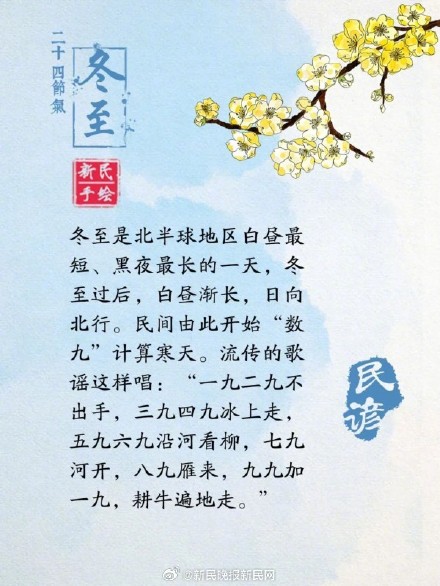 二十四節氣
冬至
新民
手绘
冬至是北半球地区白昼最
短、黑夜最长的一天，冬
至过后，白昼渐长，日向
北行。民间由此开始“数
九”计算寒天。流传的歌
谣这样唱：“一九二九不
出手，三九四九冰上走，
五九六九沿河看柳，七九
河开，八九雁来，九九加
一九，耕牛遍地走。”
民谚
@新民晚报新民网